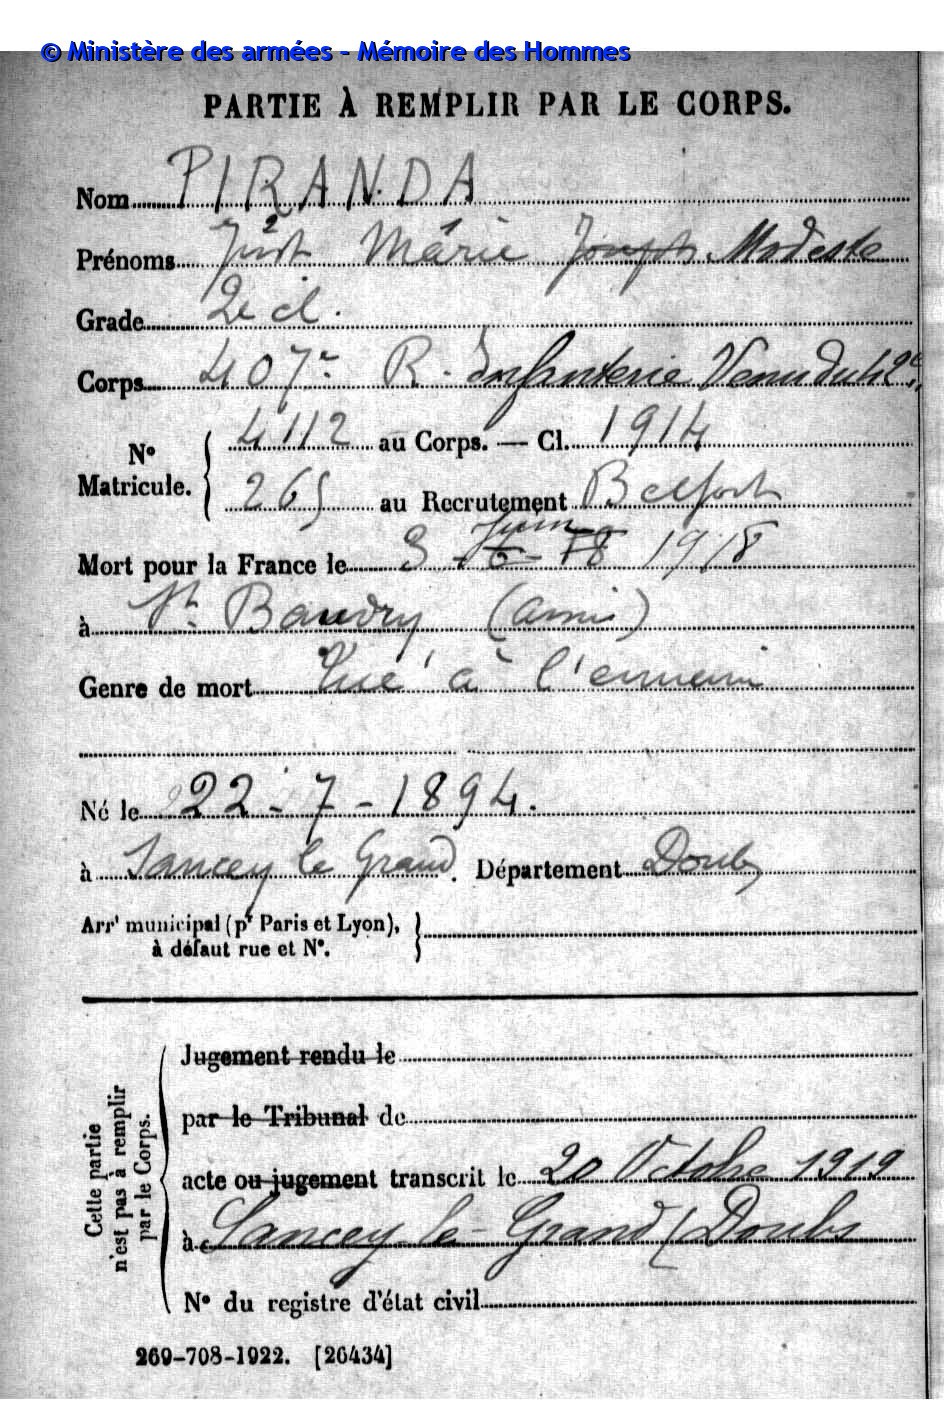 © Ministère des armées - Mémoire des Hommes
PARTIE À REMPLIR PAR LE CORPS.
Nom PIRANDA
Prénoms Just Marie Joseph Modeste
2
Grade 2e cl.
Corps 407e R. Infanterie
4112 au Corps. — Cl. 1914
N°
Matricule.
265 au Recrutement Belfort
Juin
Mort pour la France le 3 - 6 - 18 1918
à St Bandry (Aisne)
Genre de mort Tué à l'ennemi
Né le 22 - 7 - 1894.
à Sancey le Grand. Département Doubs
Arrt municipal (pr Paris et Lyon),
à défaut rue et N°.
Cette partie
n'est pas à remplir
par le Corps.
Jugement rendu le
par le Tribunal de
acte ou jugement transcrit le 20 Octobre 1919
à Sancey-le-Grand (Doubs
N° du registre d'état civil
269-708-1922. [26434]